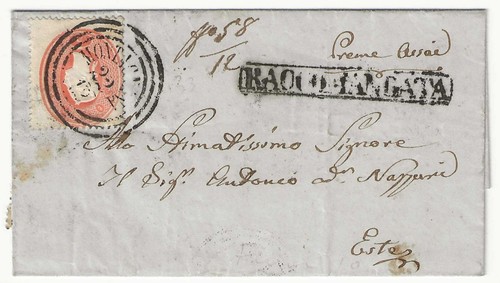 N° 58
12
Preme Assai
RACCOMANDATA
Allo Stimatissimo Signore
Il Sigr Antonio Dr Nazzari
Este